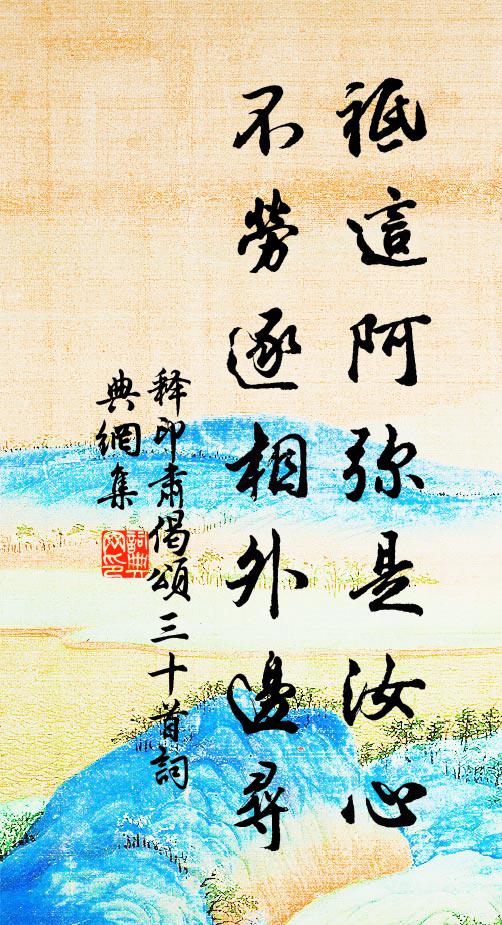 祇這阿弥是汝心
不勞逐相外邊尋
释印肃偈頌三十首詞
典網集
詞典